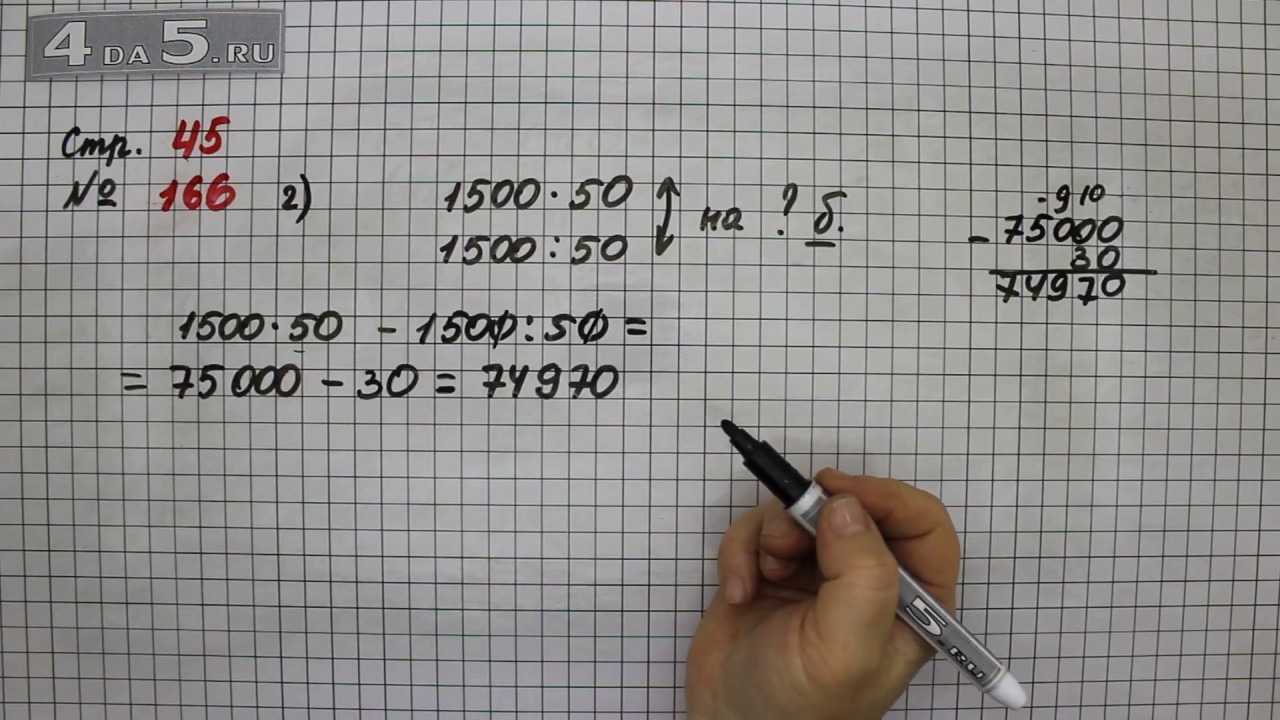 4DA5.RU
Стр. 45
№ 166 2)
1500·50
1500:50
на ? б.
·910
- 75000
30
74970
1500·50 - 1500:50 =
= 75000 - 30 = 74970
5.RU